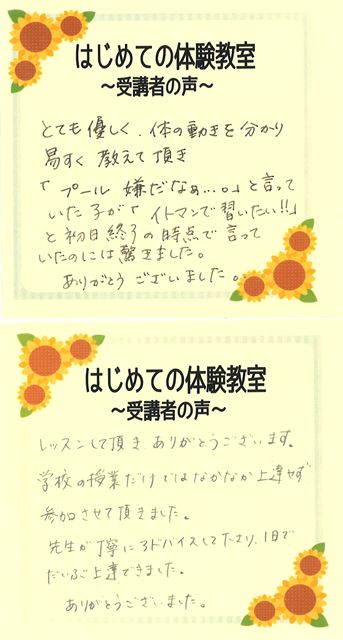 はじめての体験教室
～受講者の声～
とても優しく、体の動きを分かり
易すく教えて頂き
「プール嫌だなぁ…。」と言って
いた子が「イトマンで習いたい!!」
と初日終了の時点で言って
いたのには驚きました。
ありがとうございました。
はじめての体験教室
～受講者の声～
レッスンして頂き、ありがとうございます。
学校の授業だけではなかなか上達せず
参加させて頂きました。
先生が丁寧にアドバイスして下さり、1日で
だいぶ上達できました。
ありがとうございました。